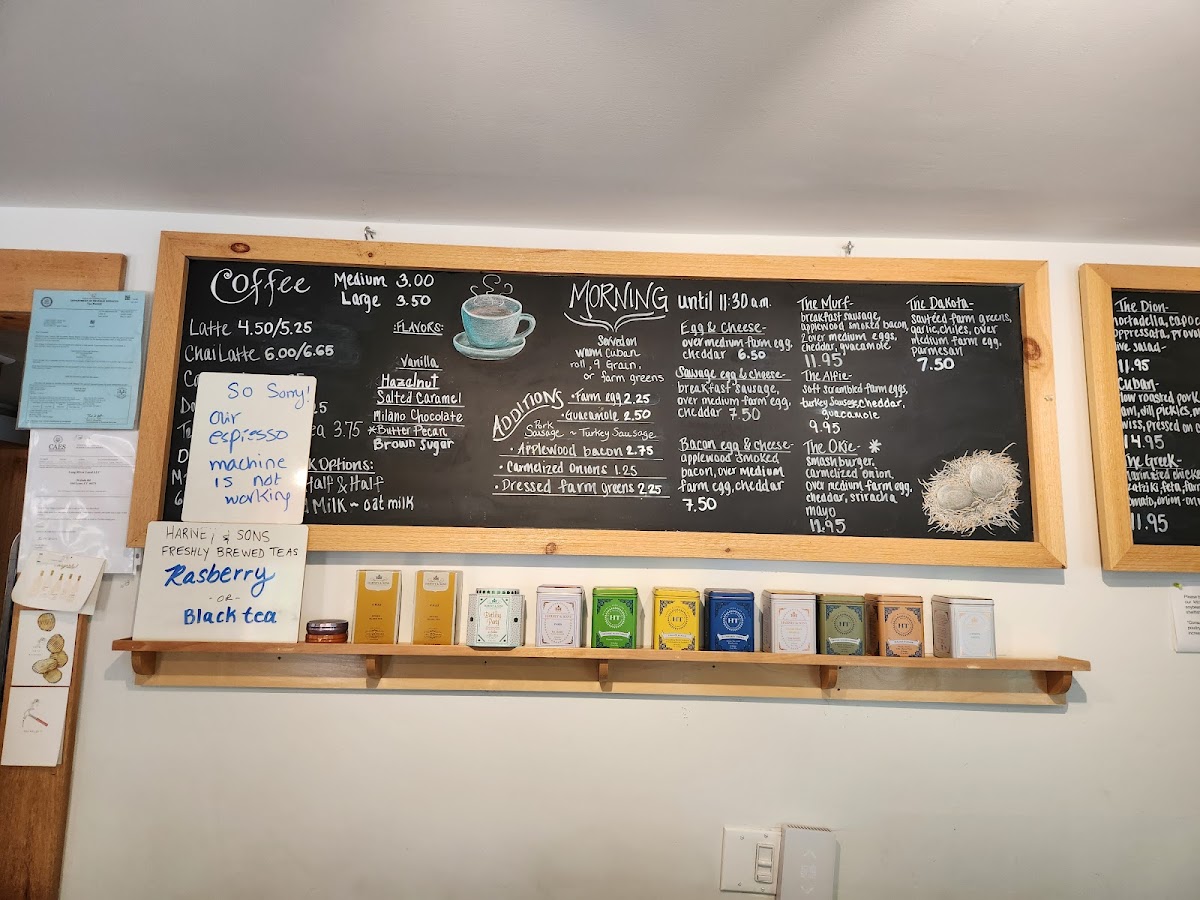 Coffee
Medium 3.00
Lage 3.50
Latte 4.50/5.25
Chai Latte 6.00/6.65
3.75
Options:
Half & Half
Milk ~ oat milk
FLAVORS:
Vanilla
Hazelnut
Salted Caramel
Milano Chocolate
*Butter Pecan
Brown Sugar
So Sorry!
Our
espresso
machine
is not
working
HARNEY & SONS
FRESHLY BREWED TEAS
Rasberry
-OR-
Black tea
MORNING until 11:30 a.m.
Served on
warm Cuban
roll, 9 Grain,
or farm greens
ADDITIONS
• Farm egg 2.25
• Guacamole 2.50
Pork
Sausage ~ Turkey Sausage
• Applewood bacon 2.75
• Carmelized Onions 1.25
• Dressed farm greens 2.25
Egg & Cheese-
over medium farm egg,
cheddar 6.50
Sausage egg & cheese-
breakfast sausage,
over medium farm egg,
cheddar 7.50
Bacon egg & cheese-
applewood smoked
bacon, over medium
farm egg, cheddar
7.50
The Murf-
breakfast sausage,
applewood smoked bacon,
2 over medium eggs,
cheddar, guacamole
11.95
The Alfie-
soft scrambled farm eggs,
turkey sausage, cheddar,
guacamole
9.95
The Okie- *
smash burger,
carmelized onion,
over medium farm egg,
cheddar, sriracha
mayo
The Dakota-
sautéed farm greens,
garlic, chiles, over
medium farm egg,
parmesan
7.50
The Dion-
salad-
11.95
Cuban-
14.95
The Greek-
11.95
CAES
HT
HT
HT
HT
HT